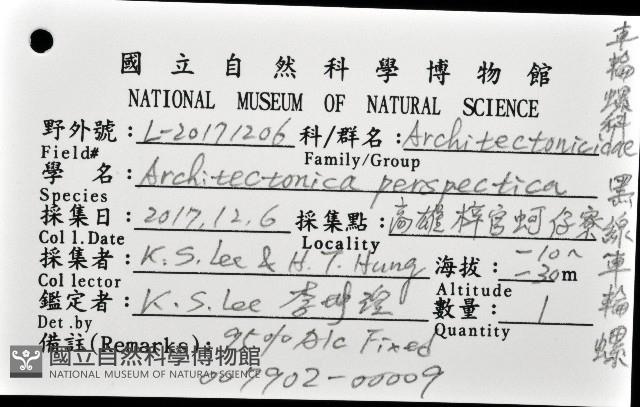 國立自然科學博物館
NATIONAL MUSEUM OF NATURAL SCIENCE
野外號：L-20171206 科/群名：Architectonicidae
Field# Family/Group
學 名：Architectonica perspectica
Species
採集日：2017.12.6 採集點：高雄梓官蚵仔寮
Col l.Date Locality
採集者：K.S.Lee & H.T.Hung 海拔：-10~-30m
Col lector Altitude
鑑定者：K.S.Lee 李坤瑄 數量：1
Det .by Quantity
備註(Remarks)：95% Alc Fixed
007902-00009
車輪螺科 黑線車輪螺
國立自然科學博物館
NATIONAL MUSEUM OF NATURAL SCIENCE